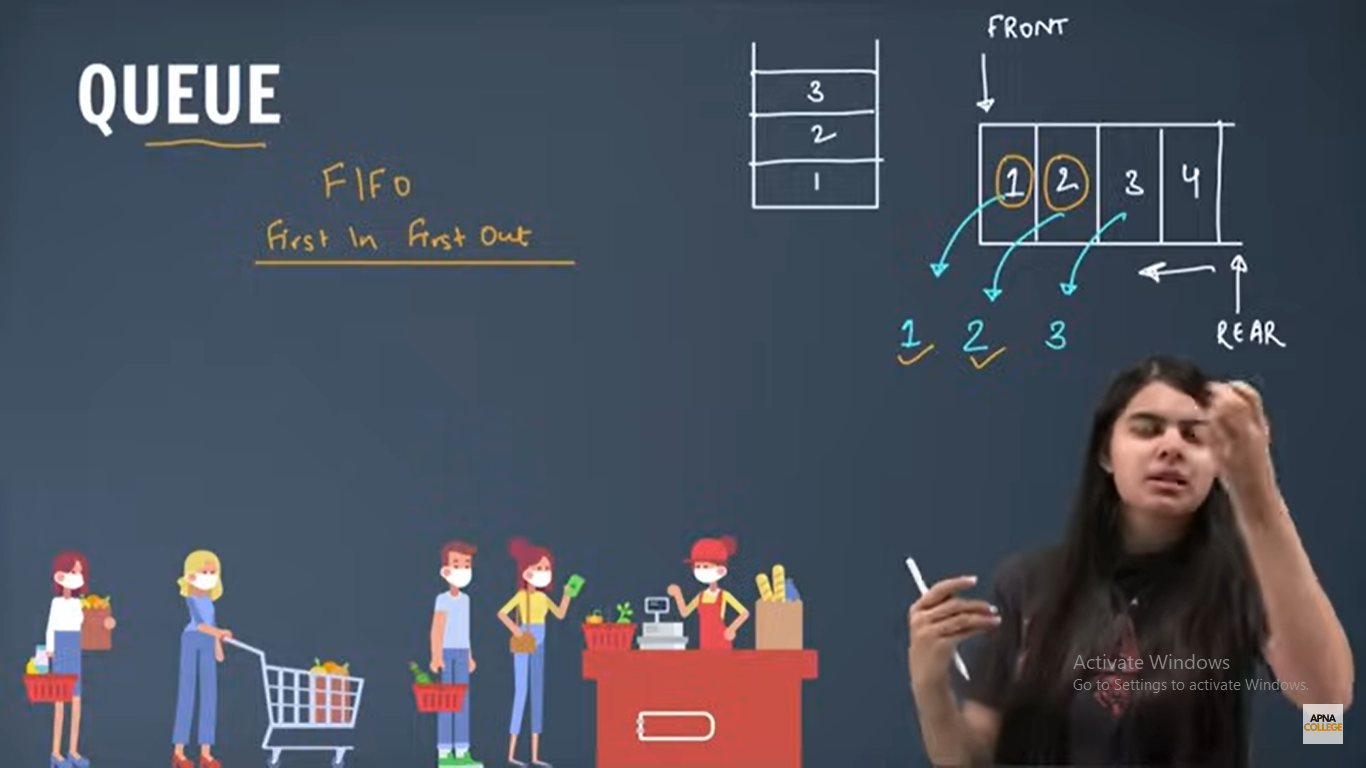 QUEUE
FIFO
First In First Out
3
2
1
FRONT
1 2 3 4
1 2 3
REAR
Activate Windows
Go to Settings to activate Windows.
APNA
COLLEGE